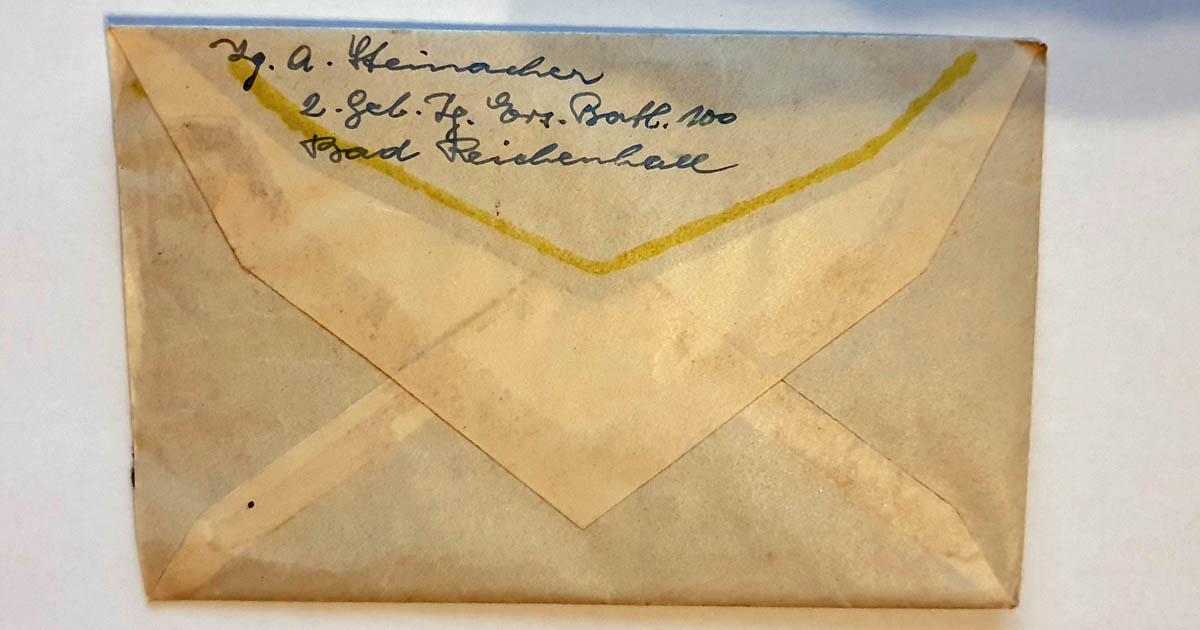 Jg. A. Steinacher
2. Geb. Jg. Ers. Batl. 100
Bad Reichenhall